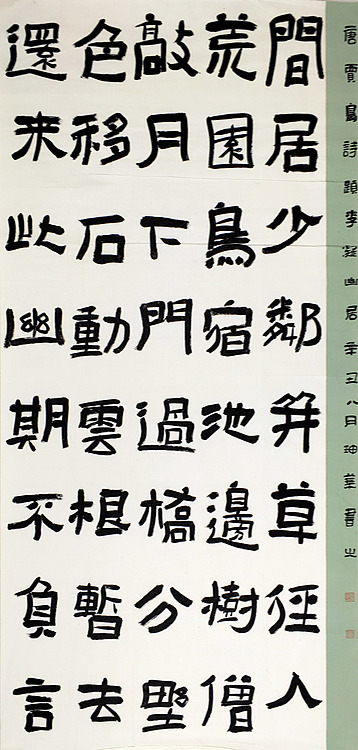 唐賈島詩題李凝幽居辛丑八月珅華書之
間居少鄰并草径入
荒園鳥宿池邊樹僧
敲月下門過橋分野
色移石動雲根暫去
還来此幽期不負言